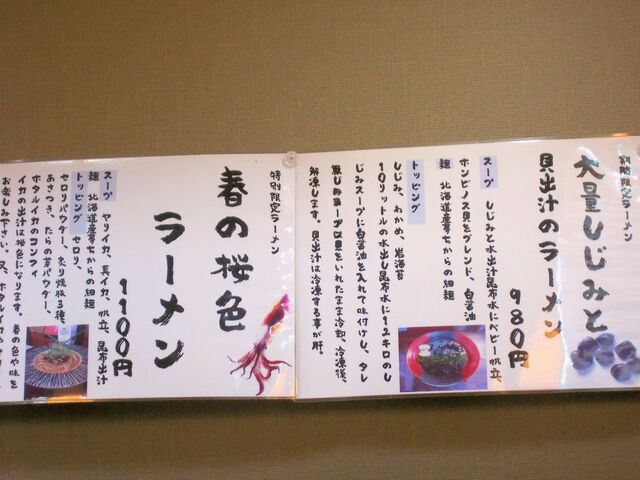 期間限定ラーメン
大量しじみと
貝出汁のラーメン
980円
スープ しじみと水出汁昆布水にベビー帆立、
ホンビノス貝をブレンド、白醤油
麺 北海道産夢ちからの細麺
トッピング
しじみ、わかめ、岩海苔
10リットルの水出し昆布水に1ユキロのし
じみスープに白醤油を入れて味付けし、タレ
無しじみスープは貝をいれたまま冷却、冷凍後、
解凍します。貝出汁は冷凍する事が肝。
特別限定ラーメン
春の桜色
ラーメン
1100円
スープ ヤリイカ、真イカ、帆立、昆布出汁
麺 北海道産夢ちからの細麺
トッピング セロリ、
セロリパウダー、炙り焼豚3種、
あさつき、たらの芽パウダー、
ホタルイカのコンフィ
イカの出汁は桜色になります。春の色や味を
お楽しみ下さい。又、ホタルイカや